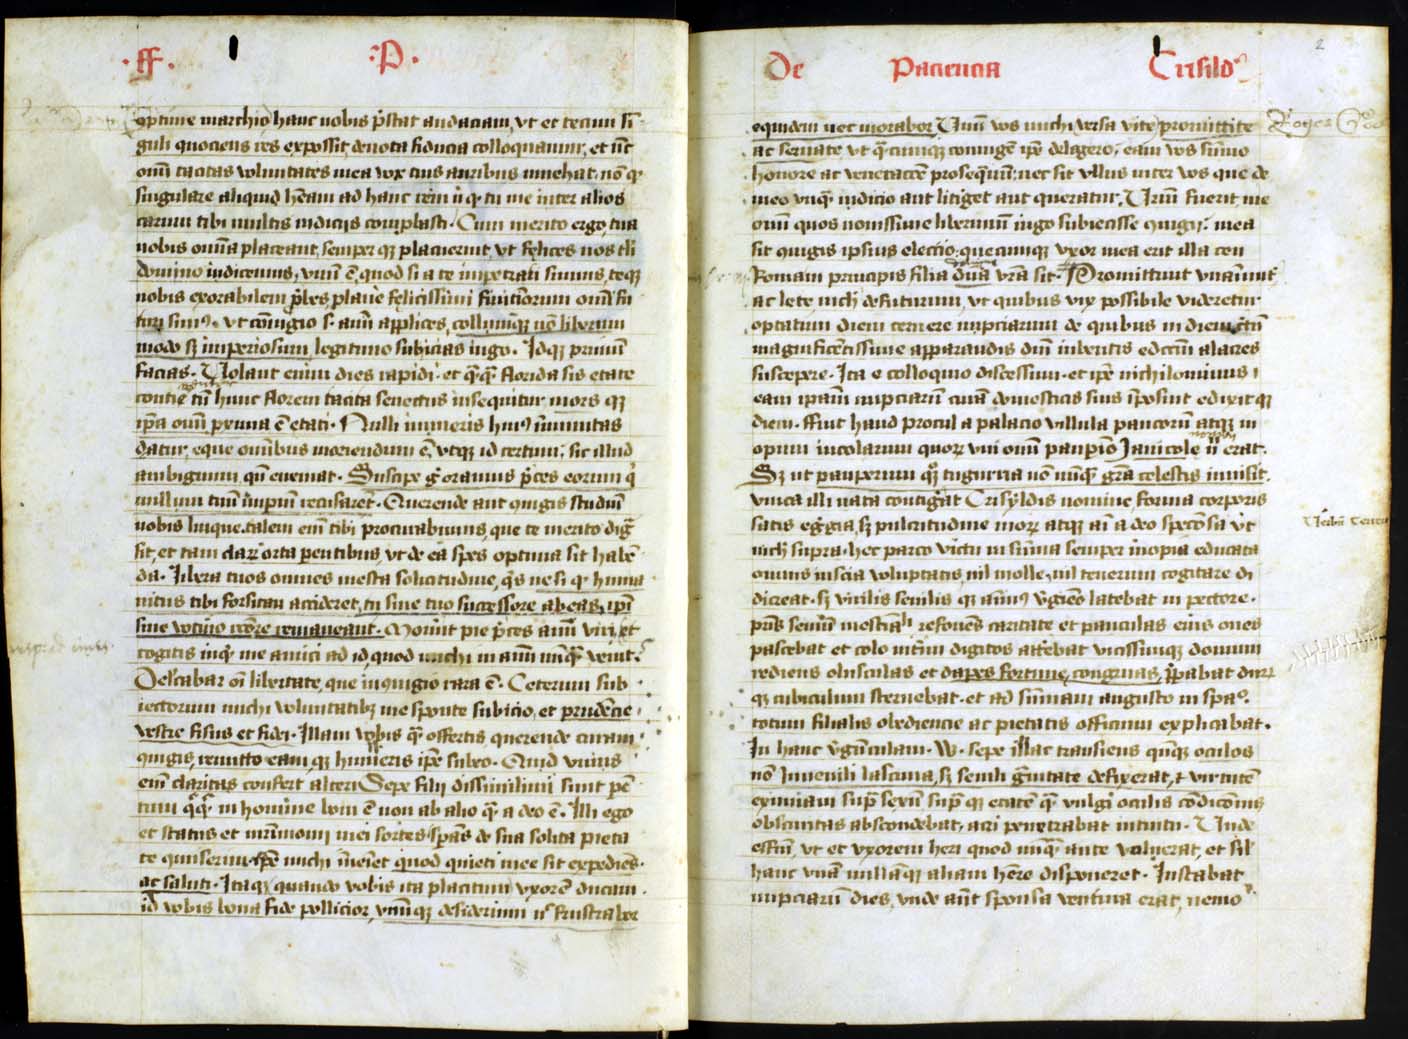 . ff .   : P .
optime marchio hanc nobis p̄stat audaciam, vt et tecum sī-
guli quociens res exposcit, deuota fiducia colloquamur, et nūc
oīm tacitas voluntates mea vox tuis auribus inuehat. nō qꝫ
singulare aliquid hēam ad hanc rem n̄ qꝫ tu me inter alios
carum tibi multis indicijs comp̄basti. Cum merito ergo, tua
nobis oīa placeant, semper qꝫ placuerint, vt felices nos tli
domino iudicemus, vnū ē, quod si a te impetrari sinis, teqꝫ
nobis exorabilem p̄bes, plane felicissimi finitimorum oīm fu
turi simꝰ. vt coniugio s. aīm applices, collumqꝫ nō liberum
modo sꝫ imperiosum, legitimo subicias iugo. Idqꝫ primū
facias. Volant enim dies rapidi. et qꝫqꝫ florida sis etate
contiē tn̄ hunc florem tacita senectus insequitur mors qꝫ
ip̄a oīm p̄xima ē etati. Nulli muneris huiꝰ īmunitas
datur, eque omībus moriendum ē, vtqꝫ id certum, sic illud
ambiguum, qn̄ eueniat. Suscipe gͦ oramus p̄ces eorum qͥ
nullum tuū impiū recusarēt. Querende aut coniugis studiū
nobis linque. talem em̄ tibi procurabimus, que te merito dig̅
sit, et tam claꝝ orta parentibus, vt de ea spes optima sit habē
da. Libera tuos omnes mesta solicitudine, q̄s ne si qꝫ huma
nitus tibi forsitan accideret, tu sine tuo successore abeas, ip̄i
sine votiuo rc̄ore remaneant. Mouerūt pie p̄ces aīm viri, et
cogitis inqͭ me amici ad id, quod michi in aīm nūqꝫ venit.
Delc̄abar oī libertate, que in coniugio rara ē. Ceterum sub
iectorum michi voluntatibꝫ me sponte subicio, et prudēcie
vestre fisus et fidei. Illam vobis qꝫ offertis querende curam
coniugis, remitto eam qꝫ humeris ip̄e subeo. Quid vnius
em̄ claritas confert alteri Sepe filij dissimilimi sunt pͤ
tum qͥcqͥd in homine boni ē non ab alio qꝫ a deo ē. Illi ego
et status et mrīmonij mei sortes, sp̄ās de sua solita pieta
te comiserim. Ip̄e michi īueīet quod quieti mee sit expediēs.
ac saluti. Itaqꝫ quando vobis ita placitum, vxorē ducam.
id vobis bona fide polliceor, vr̄mqꝫ desiderium n̄ frustrabor
De   Paciencia   Grisildꝰ
2
equidem nec morabor. Vnū vos michi versa vice promittite
ac seruate vt q̄cumqꝫ coniugē ip̄e delegero, eam vos sūmo
honore ac veneracōe proseq̄mī: nec sit vllus inter vos que de
meo vnqꝫ iudicio aut litiget aut queratur. Vrm̄ fuerit me
oīm quos nouissime liberrimū iugo subiecisse coniugij. mea
sit coniugis ipsius eleccio. quecumqꝫ vxor mea erit illa ceu
Romani principis filia dn̄a vr̄a sit. Promittunt vnanimit̄
ac lete nichil defuturum, vt quibus vix possibile videretur
optatum diem cernere nupciarum de quibus in diem certū
magnificētissime apparandis dn̄i iubentis edictum alacres
suscepere. Ita e colloquio discessum. et ip̄e nichilominus
eam ipsam nupciarū curā domesticis suis īposuit edixitqꝫ
diem. ffuit haud procul a palacio villula paucorū atqꝫ in
opum incolarum quoꝝ vni oīm pauprīo Janicole n̄ erat.
Sꝫ ut pauperum qꝫ tuguria nō nūqꝫ gr̄a celestis inuisit.
vnica illi nata contigerat Grisyldis nomine, forma corporis
satis eg̅gia, sꝫ pulcritudine moꝝ atqꝫ aī a deo speciosa vt
nich̄ supra. hec parco victu in sūma semper inopia educata
omnis inscia voluptatis, nil molle, nil tenerum cogitare di
dicerat. sꝫ virilis senilis qꝫ anīmꝰ v̄gineo latebat in pectore.
pr̄is seniū inestīabili refouēs caritate et pauculas eius oues
pascebat et colo int̄im digitos atterebat vicissimqꝫ domum
rediens oluscula et dapes fortune congruas, p̄pabat duꝝ
qꝫ cubiculum sternebat. et ad sūmam angusto in spaͦ.
totum filialis obediencie ac pietatis officium explicabat.
In hanc v̄gūculam. W. sepe illac transiens qn̄qꝫ oculos
nō Iuuenili lasciuia, sꝫ senili g̅uitate defixerat, et virtutē
eximiam sup̄ sexū sup̄ qꝫ etatē qꝫ vulgi oculis cōdicōnis
obscuritas abscondebat, acri penetrabat intuitu. Vnde
effcm̄, vt et vxorem heri quod nūqꝫ ante voluerat, et sil̄
hanc vnā nullāqꝫ aliam hēre disponeret. Instabat
nupciarū dies, vnde aūt sponsa ventura erat, nemo